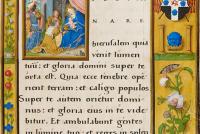 NARE
hierusalem quia
venit lumen
tuũ: et gloria domini super te
orta est. Quia ecce tenebre ope
rient terram: et caligo populos
Super te autem orietur domi
nus: et gloria eius in te vide
bitur. Et ambulabunt gentes
in lumine tuo: et reges in splen